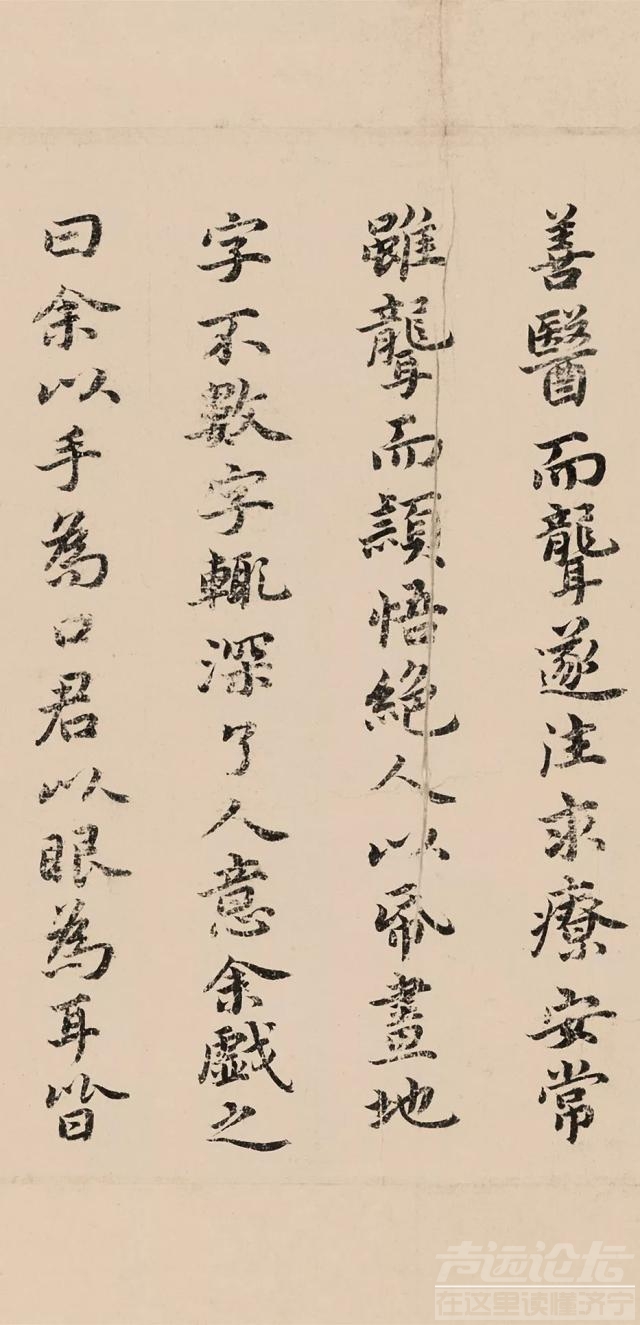 善醫而聾遂往求療安常
雖聾而頴悟絕人以帋畫地
字不數字輒深了人意余戯之
曰余以手為口君以眼為耳皆
声远论坛
在这里读懂济宁